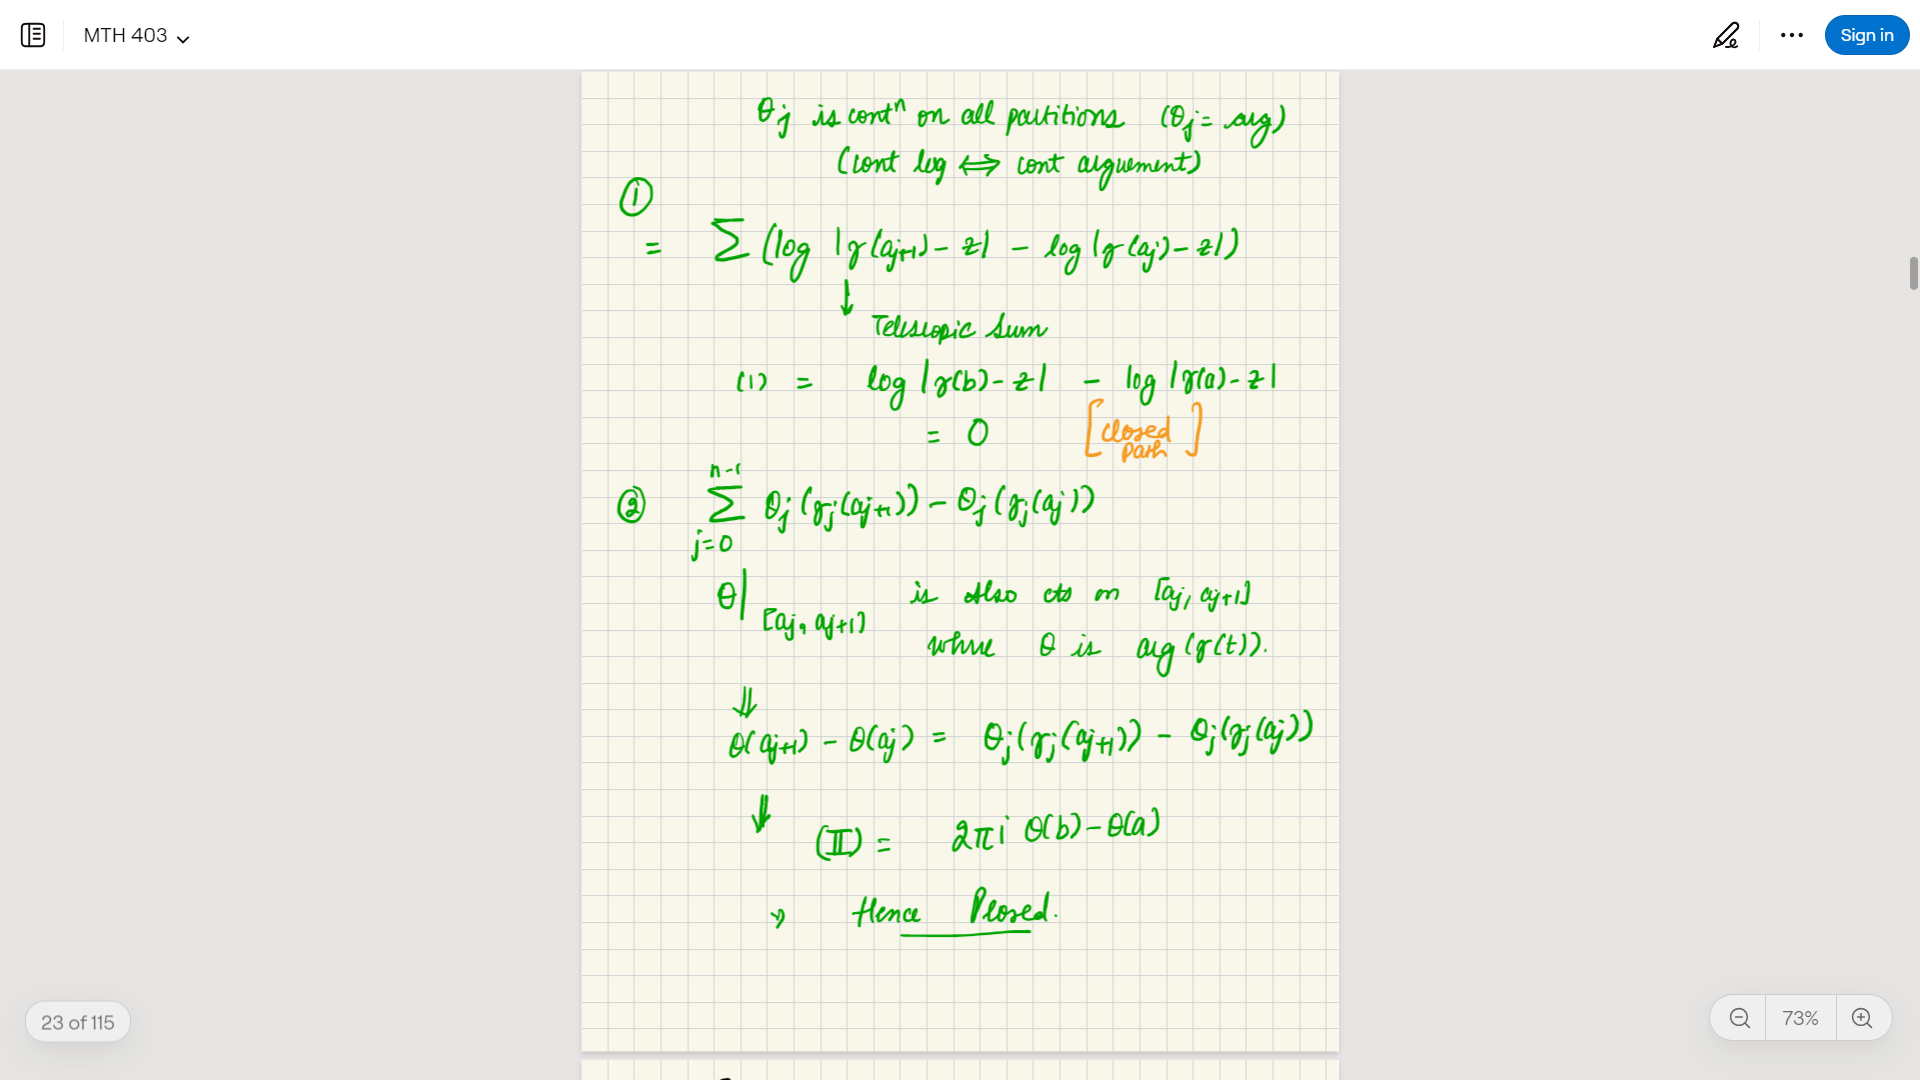 MTH 403
Sign in
θj is contⁿ on all partitions (θj = arg)
(cont log ⟺ cont arguement)
①
= Σ (log |γ(aj+1) - z| - log |γ(aj) - z|)
↓
Telescopic Sum
(1) = log |γ(b) - z| - log |γ(a) - z|
= 0 [closed path]
② Σ_{j=0}^{n-1} θj (γj(aj+1)) - θj (γj(aj))
θ|[aj, aj+1] is also cts on [aj, aj+1]
where θ is arg (γ(t)).
⇓
θ(aj+1) - θ(aj) = θj(γj(aj+1)) - θj(γj(aj))
⇓
(II) = 2πi θ(b) - θ(a)
⇒ Hence Proved.
23 of 115
73%